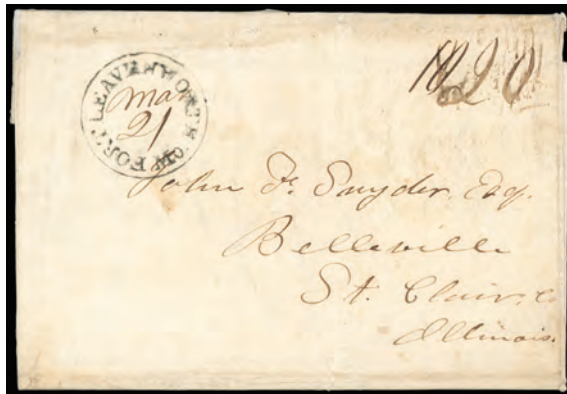 FORT LEAVENWORTH MO.
Mar
21
John F. Snyder, Esq.
Belleville
St. Clair, Co
Illinois.